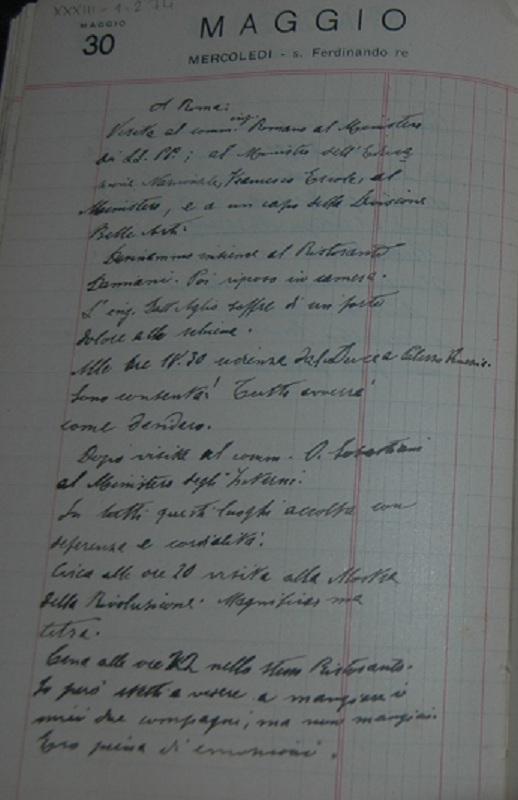 XXXIII-1-2
MAGGIO
30
MAGGIO
MERCOLEDI - s. Ferdinando re
A Roma:
Visita al comm. ing. Romano al Ministero
di LL. PP.; al Ministro dell'Educa-
zione Nazionale, Francesco Ercole, al
Ministero, e a un capo della Divisione
Belle Arti.
insieme al Ristorante
Damiani. Poi riposo in camera.
L'ing. Dall'Aglio soffre di un forte
dolore alla schiena.
Alle ore 18.30 udienza dal Duce a Palazzo Venezia.
Sono contenta! Tutto avverrà
come desidero.
Dopo visita al comm. O. Sebastiani
al Ministero degli Interni.
In tutti questi luoghi accolta con
deferenza e cordialità.
Circa alle ore 20 visita alla Mostra
della Rivoluzione. Magnifica ma
tetra.
Cena alle ore 22 nello stesso Ristorante.
Io però stetti a vedere a mangiare i
miei due compagni, ma non mangiai.
Ero piena di emozioni.